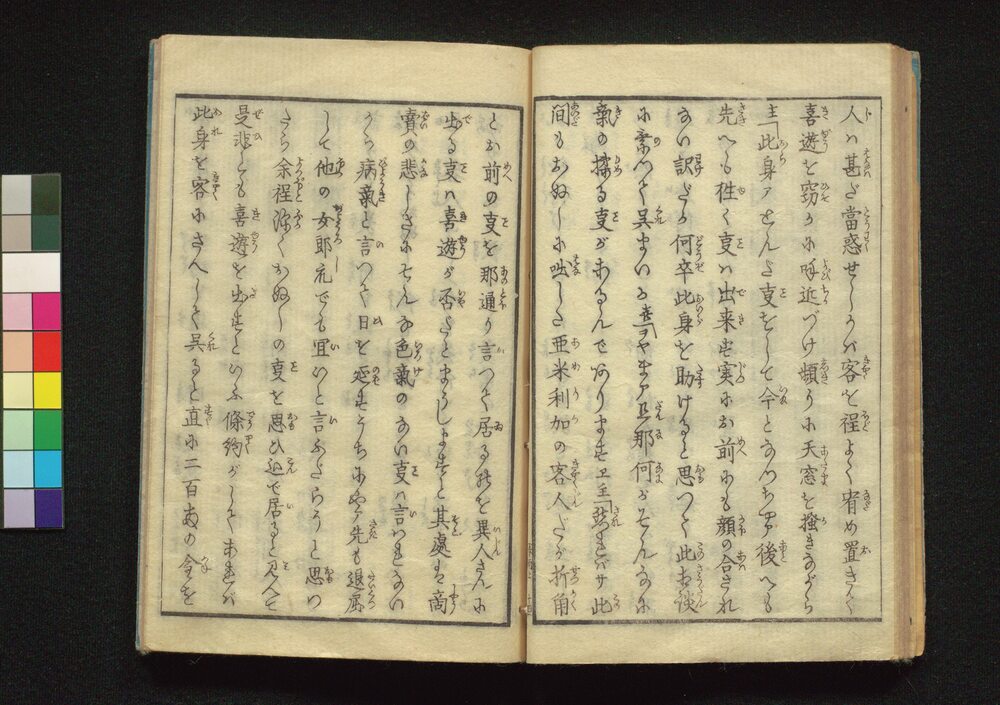 人ハ甚だ當惑せしかバ客を程よく宥め置きさて
喜遊を窃かに呼近づけ頻りに天窓を掻きながら
主「此身アとんだ叓をして今となつちやア後へも
先へも往く叓ハ出来ず実にお前にも顔の合され
ない訳だが何卒此身を助けると思つて此相談
に乗つて呉まいか喜「ヲヤまア旦那何がそんなに
氣の揉る叓があるんでありますヱ主「然ればサ此
間もおぬしに咄した亜米利加の客人だが折角
とお前の叓を那通り言つて居るのを異人さんに
出る叓ハ喜遊が否だと申しますと其處は商
賣の悲しさにそんな色氣のない叓ハ言はれない
から病氣と言つて日を延すうちにやア先も退屈
して他の女郎衆でも宜いと言ふだらうと思つ
たら余程深くおぬしの叓を思ひ込で居ると見へて
是非とも喜遊を出すといふ條約がしてあれバ
此身を客にさへして呉ると直に二百両の金を